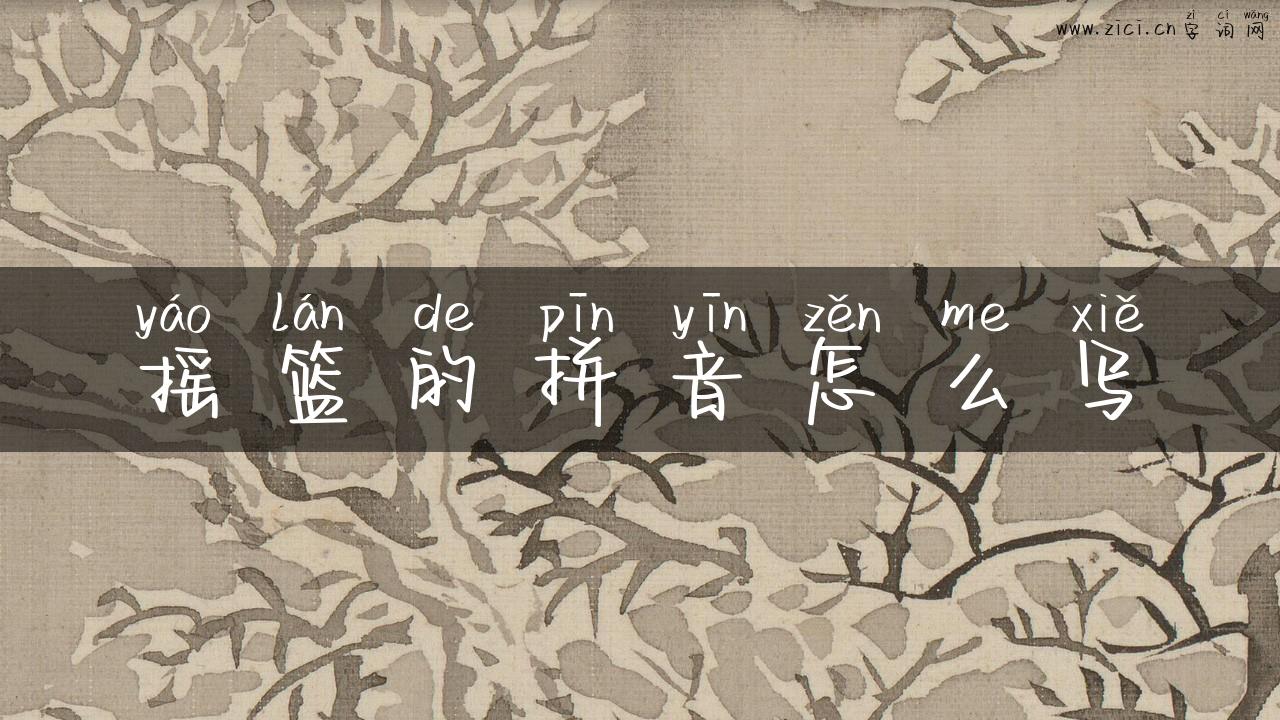 zì cí wǎng
www.zici.cn字词网
yáo lán de pīn yīn zěn me xiě
摇篮的拼音怎么写